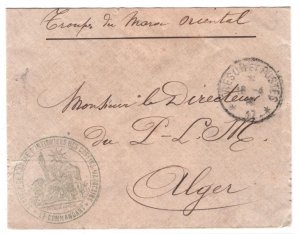 Troupes du Maroc Oriental
TRESOR ET POSTES
Monsieur le Directeur
du P-L-M.
Alger
LE COMMANDANT